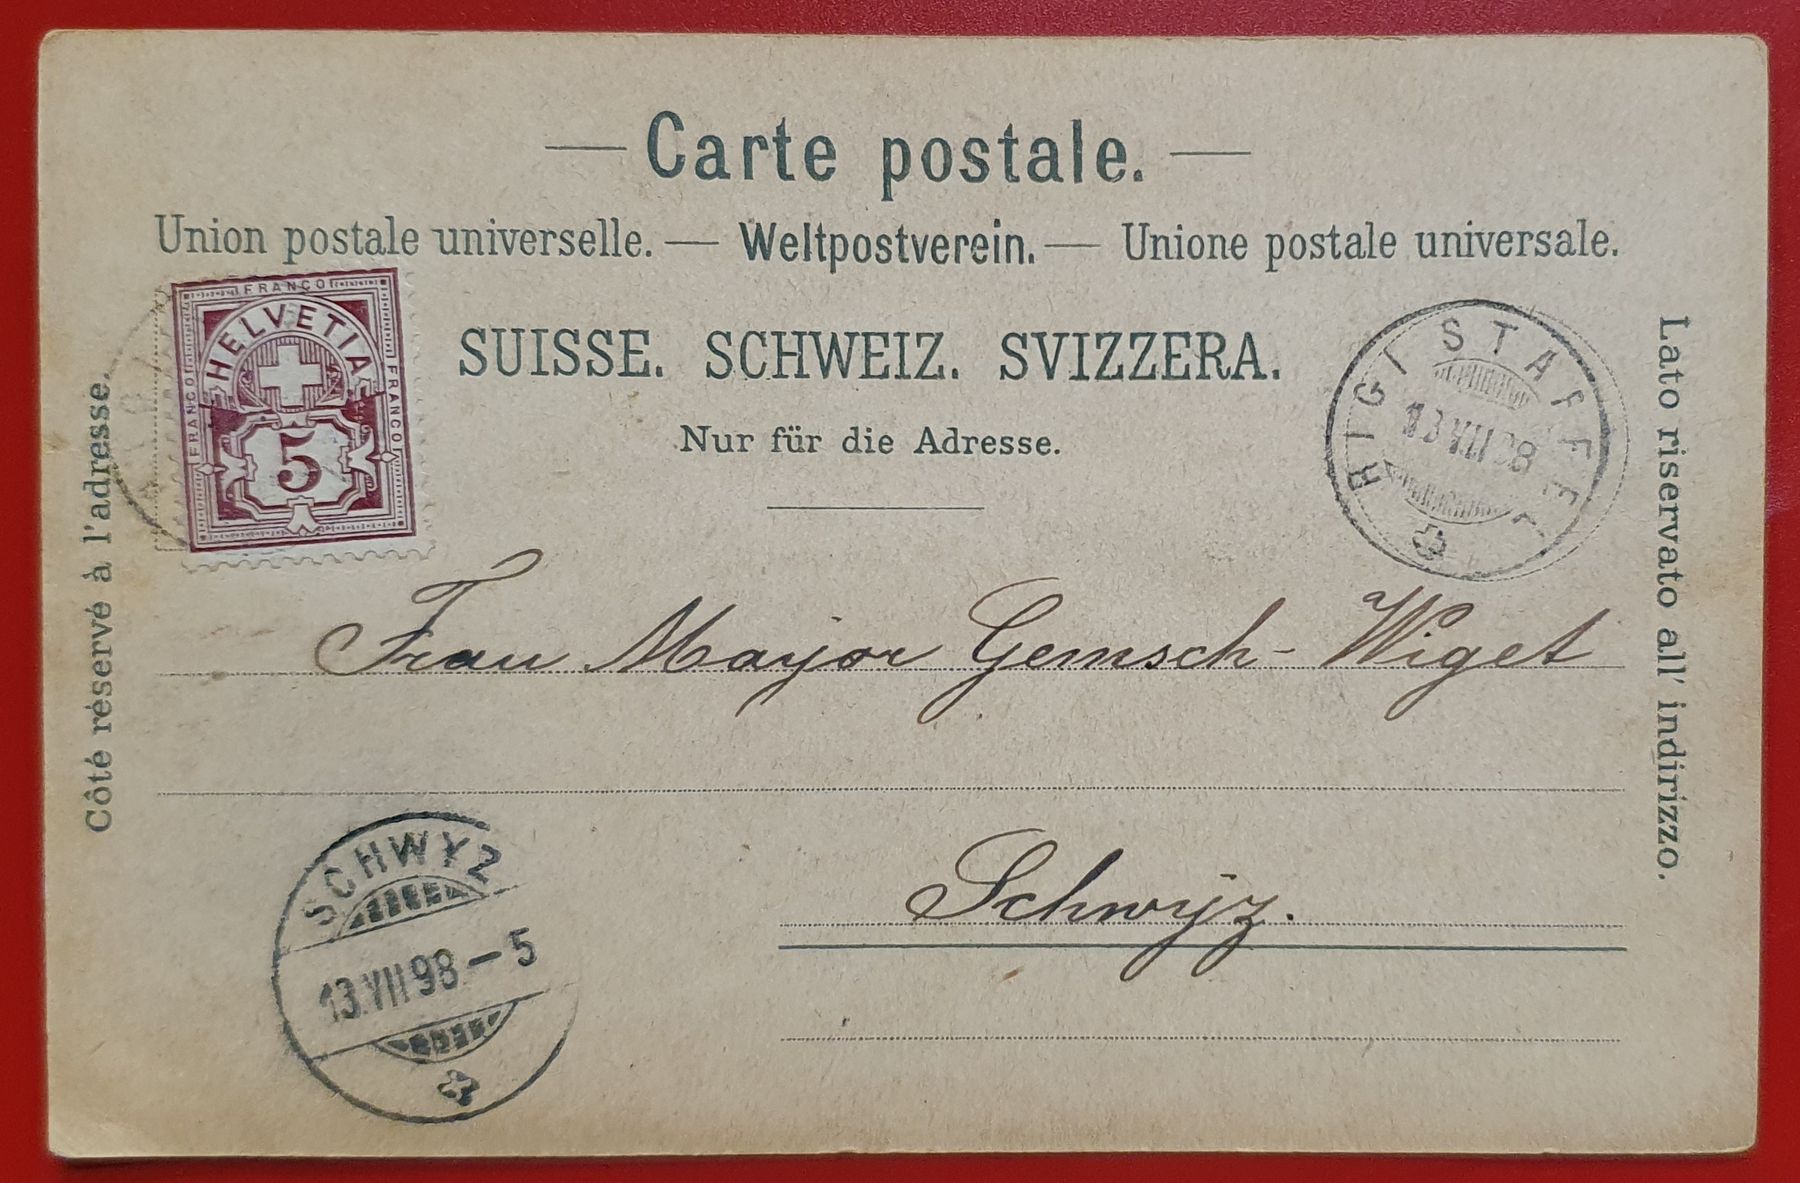 Carte postale.
Union postale universelle. — Weltpostverein. — Unione postale universale.
SUISSE. SCHWEIZ. SVIZZERA.
Nur für die Adresse.
Côté réservé à l'adresse.
Lato riservato all' indirizzo.
FRANCO
HELVETIA
FRANCO
FRANCO
5
RIGI STAFFEL
13 VII 98
Frau Major Gemsch-Wiget
Schwyz.
SCHWYZ
13.VII 98 – 5